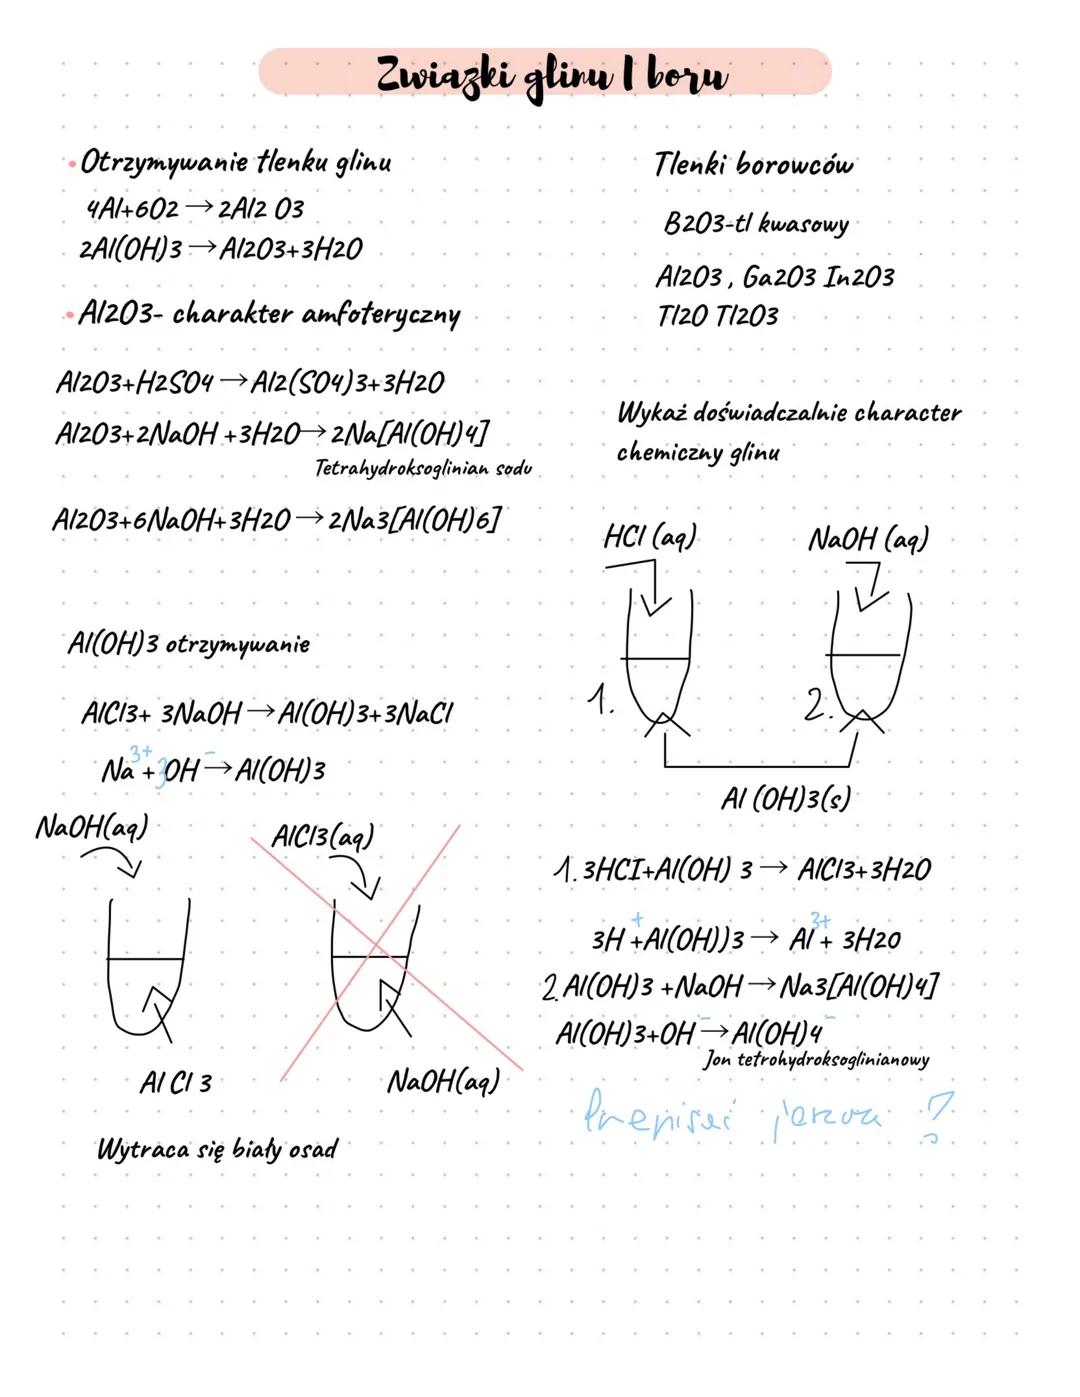 Zwiazki glinu I boru
• Otrzymywanie tlenku glinu
4Al+6O2→2Al2 O3
2Al(OH)3→Al2O3+3H2O
• Al2O3- charakter amfoteryczny
Al2O3+H2SO4→Al2(SO4)3+3H2O
Al2O3+2NaOH+3H2O→2Na[Al(OH)4]
Tetrahydroksoglinian sodu
Al2O3+6NaOH+3H2O→2Na3[Al(OH)6]
Al(OH)3 otrzymywanie
AlCl3+ 3NaOH→Al(OH)3+3NaCl
Na³⁺+3OH⁻→Al(OH)3
NaOH(aq)
AlCl3(aq)
Al Cl 3
NaOH(aq)
Wytraca się biały osad
Tlenki borowców
B2O3-tl kwasowy
Al2O3, Ga2O3 In2O3
Tl2O Tl2O3
Wykaż doświadczalnie character
chemiczny glinu
HCl (aq)
NaOH (aq)
1.
2.
Al (OH)3(s)
1. 3HCI+Al(OH) 3→ AlCl3+3H2O
3H⁺+Al(OH))3→ Al³⁺+ 3H2O
2. Al(OH)3 +NaOH→Na3[Al(OH)4]
Al(OH)3+OH⁻→Al(OH)4⁻
Jon tetrohydroksoglinianowy
?